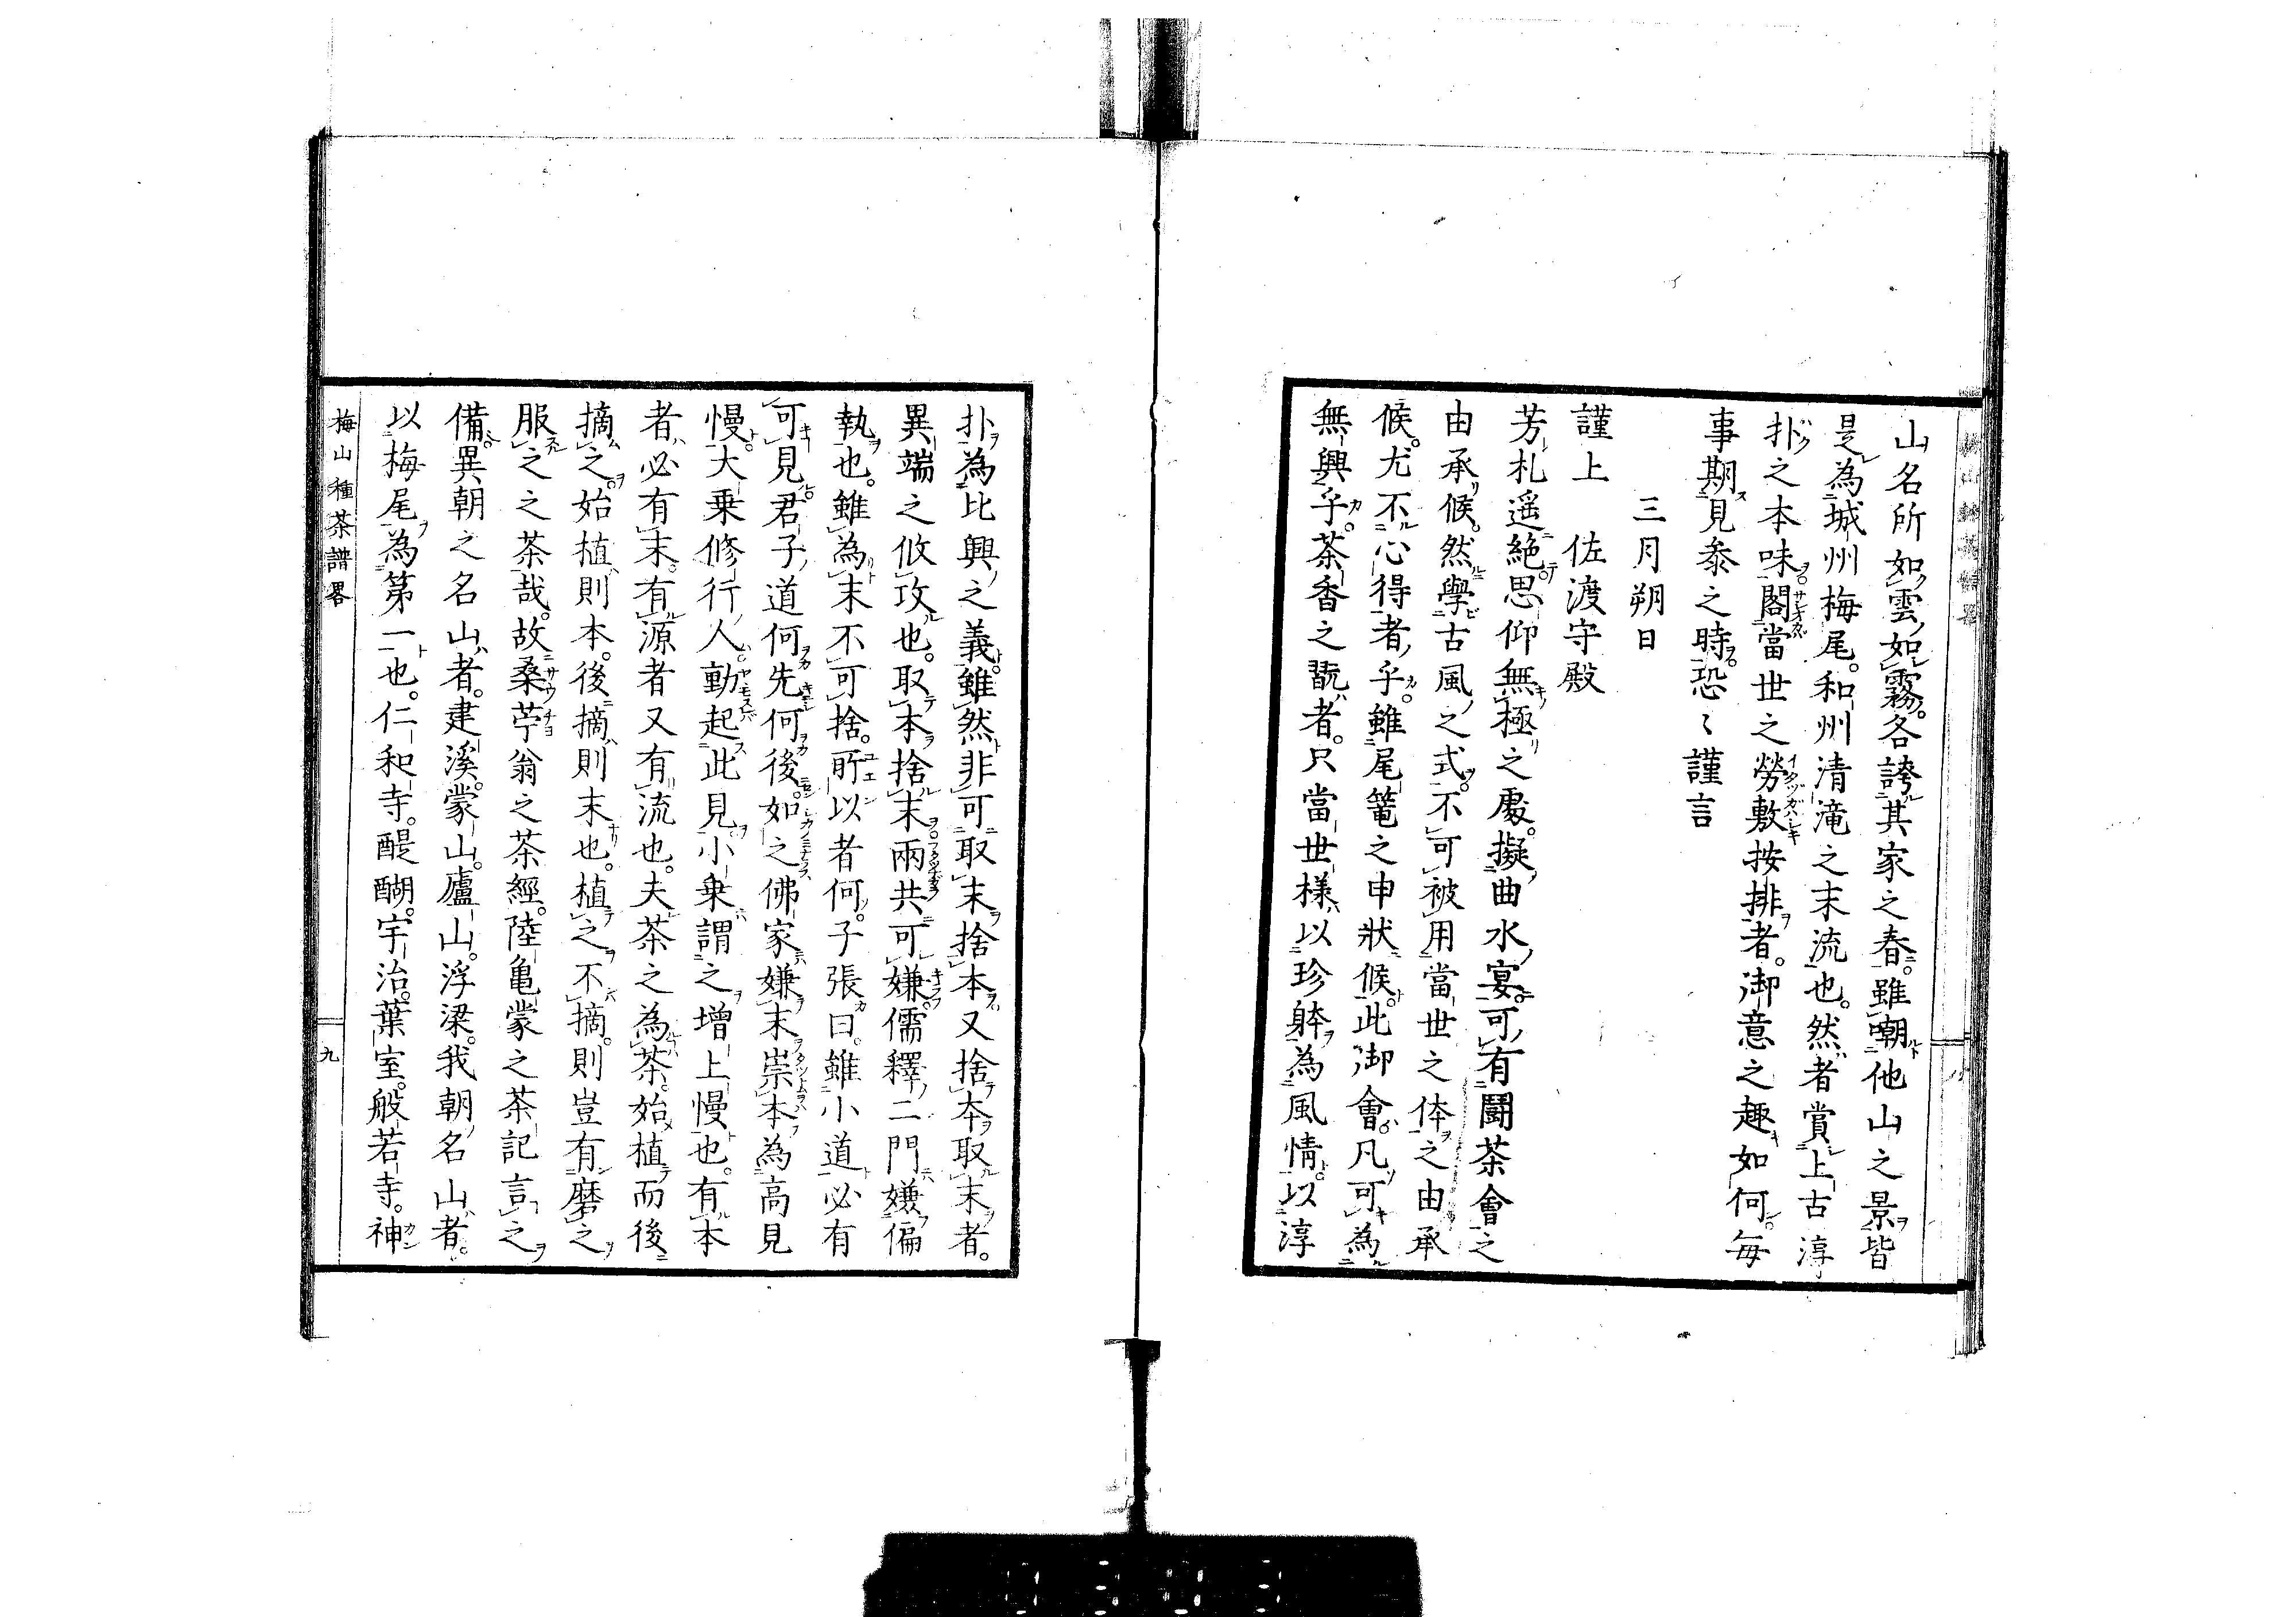 山名所如雲如霧。各誇其家之春。雖嘲他山之景皆
是為城州梅尾。和州清滝之末流也。然者賞上古淳
朴之本味。閣當世之勞敷按排者。御意之趣如何。毎
事期見参之時。恐〻謹言
三月朔日
謹上　佐渡守殿
芳札遥絶思仰無極之處。擬曲水宴。可有闘茶會之
由承候。然學古風之式。不可被用當世之体之由承
候。尤不心得者乎。雖尾篭之申状候。此御會。凡可為
無興乎。茶香之翫者。只當世様以珍躰為風情。以淳
朴為比興之義。雖然非可取末捨本又捨本取末者。
異端之攸攻也。取本捨末。兩共可嫌。儒釋二門嫌偏
執也。雖為末不可捨。所以者何。子張曰。雖小道必有
可見。君子道何先何後。如之佛家嫌末崇本為高見
慢。大乗修行人。動起此見。小乗謂之増上慢也。有本
者必有末。有源者又有流也。夫茶之為茶。始植而後
摘之。始植則本。後摘則末也。植之不摘。則豈有磨之
服之之茶哉。故桑苧翁之茶經。陸亀蒙之茶記言之
備。異朝之名山者。建溪。蒙山。廬山。浮梁。我朝名山者。
以梅尾為第一也。仁和寺。醍醐。宇治。葉室。般若寺。神
梅山種茶譜畧
九